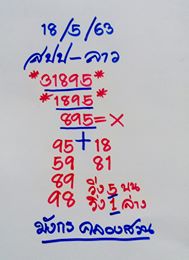 18/5/63
สปป-ลาว
*31895*
*1895*
895=X
95+18
59 81
89 วิ่ง 5 บน
98 วิ่ง 1 ล่าง
มังกร คลองสวน